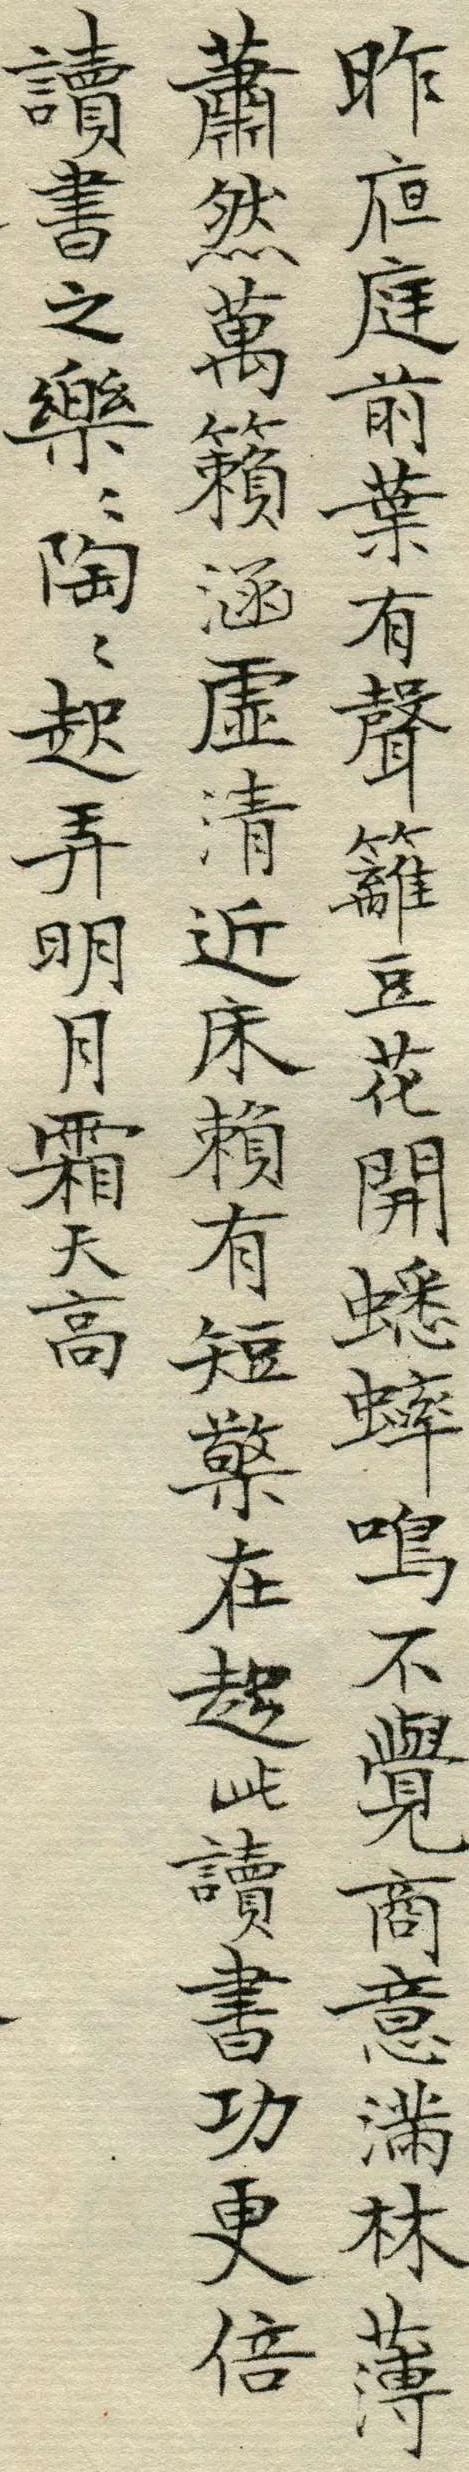 昨夜庭前葉有聲籬豆花開蟋蟀鳴不覺商意滿林薄
蕭然萬籟涵虛清近床賴有短檠在趁此讀書功更倍
讀書之樂〻陶〻起弄明月霜天高